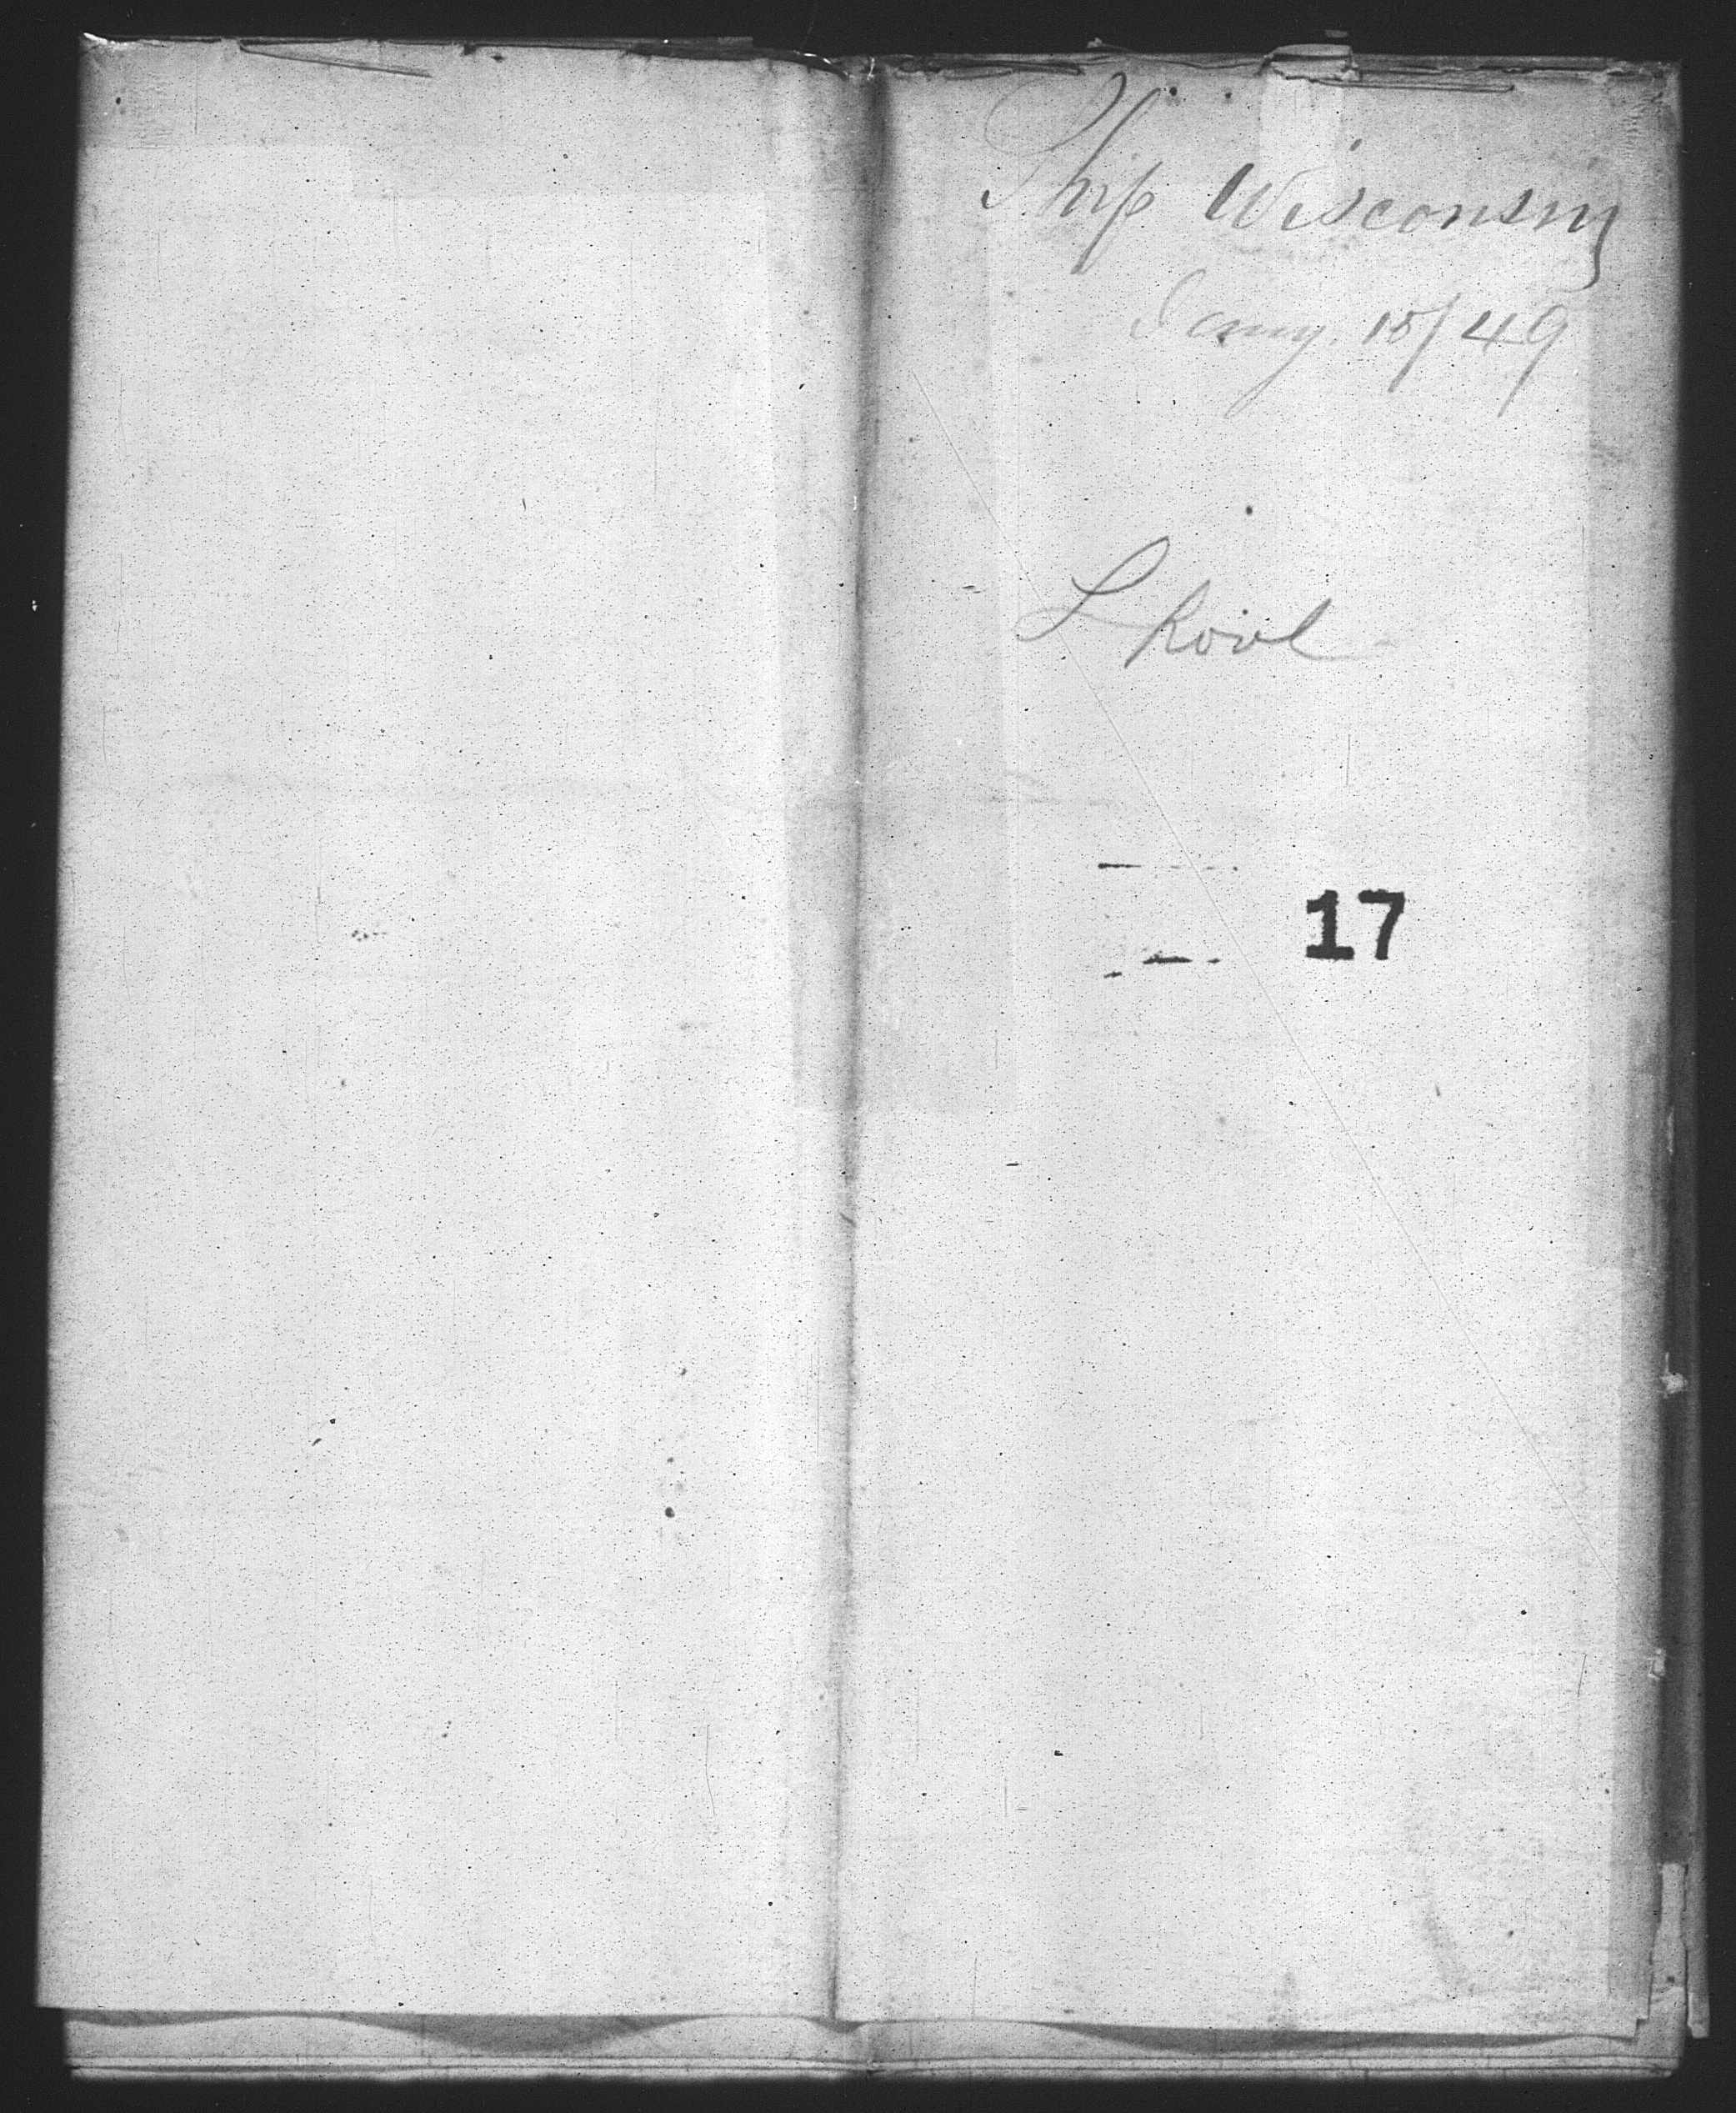 Ship Wisconsin
Jany. 15/49
L pool
17